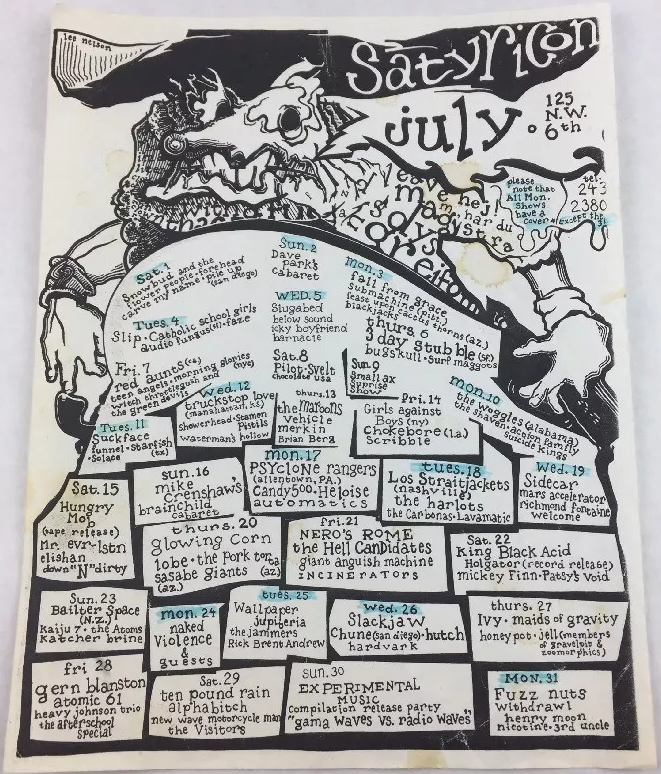 lee nelson
Satyricon
july
125
N.W.
6th
please
note that
All Mon.
Shows
have a
cover
except the
31
tel.
243
2380
Sat. 1
Snowbud and the
flower people · forehead
carve my name · pile up
(san diego)
Sun. 2
Dave
park's
cabaret
mon. 3
fall from grace
submachine (pitts)
feast upon cactus thorns (az.)
blackjacks
Tues. 4
Slip · Catholic school girls
audio fungus (sf) · faze
WED. 5
Slugabed
below sound
icky boyfriend
barnacle
thurs. 6
3 day stubble (sf)
bugskull · surf maggots
Fri. 7
red aunts (ca)
teen angels · morning glories
(nyc)
witch throttlegush and
the green devils
Sat. 8
Pilot · Svelt
chocolate usa
Sun. 9
Small ax
suprise
show
mon. 10
the woggles (alabama)
the maven · action family
suicide kings
Tues. 11
Suckface
funnel · Starfish
· Solace (tx)
Wed. 12
truckstop love
(manahattan, ks)
showerhead · Stamen
Pistils
waterman's hollow
thurs. 13
the maroons
vehicle
merkin
Brian Berg
Fri. 14
Girls against
Boys (ny)
chokebore (l.a.)
Scribble
Sat. 15
Hungry
Mob
(tape release)
Mr. evr-lstn
elishan
down "N" dirty
sun. 16
mike
crenshaw's
brainchild
cabaret
mon. 17
PSYcloNe rangers
(allentown, PA.)
Candy 500 · Heloise
automatics
tues. 18
Los Straitjackets
(nashville)
the harlots
the Carbonas · Lavamatic
Wed. 19
Sidecar
mars accelerator
richmond fontaine
welcome
thurs. 20
glowing corn
lobe · the Pork torta
sasabe giants (az)
(az.)
fri. 21
NERO'S ROME
the Hell Candidates
giant anguish machine
INCINERATORS
Sat. 22
King Black Acid
Holgator (record release)
mickey Finn · Patsy's void
Sun. 23
Bailter Space
(N.Z.)
Kaiju 7 · the Atoms
Katcher brine
mon. 24
naked
Violence
&
guests
tues. 25
Wallpaper
jupiteria
the jammers
Rick Brent Andrew
Wed. 26
Slackjaw
Chune (san diego) · hutch
hardvark
thurs. 27
Ivy · maids of gravity
honey pot · jell (members
of graveloit &
zoomorphics)
fri 28
gern blanston
atomic 61
heavy johnson trio
the afterschool
special
Sat. 29
ten pound rain
alphabitch
new wave motorcycle man
the Visitors
Sun. 30
EXPERIMENTAL
MUSIC
compilation release party
"gama waves vs. radio waves"
MON. 31
Fuzz nuts
withdrawl
henry moon
nicotine · 3rd uncle